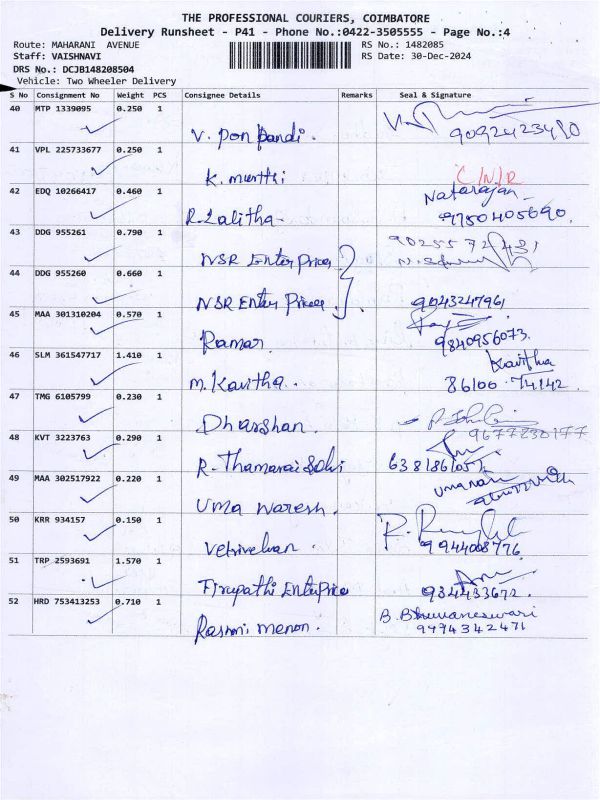 THE PROFESSIONAL COURIERS, COIMBATORE
Delivery Runsheet - P41 - Phone No.:0422-3505555 - Page No.:4
Route: MAHARANI AVENUE RS No.: 1482085
Staff: VAISHNAVI RS Date: 30-Dec-2024
DRS No.: DCJB148208504
Vehicle: Two Wheeler Delivery
S No Consignment No Weight PCS Consignee Details Remarks Seal & Signature
40 MTP 1339095 0.250 1
V. Pon Pandi. 9092423480
41 VPL 225733677 0.250 1
K. murthi C/N/R
42 EDQ 10266417 0.460 1 Natarajan
R. Lalitha 9750405690
43 DDG 955261 0.790 1
NSR Enter Prices
44 DDG 955260 0.660 1
NSR Enter Prices 9043247961
45 MAA 301310204 0.570 1
Ramar 9840956073
46 SLM 361547717 1.410 1 Kavitha
M. Kavitha 86100 74142
47 TMG 6105799 0.230 1
Dharshan 9677830177
48 KVT 3223763 0.290 1
R. Thamarai Selvi
49 MAA 302517922 0.220 1
Uma Naresh.
50 KRR 934157 0.150 1
Vetrivelvan 9944008776
51 TRP 2593691 1.570 1
Tirupathi Enterprice 934433672
52 HRD 753413253 0.710 1 B. Bhuvaneswari
Rasmi Menon. 9494342471